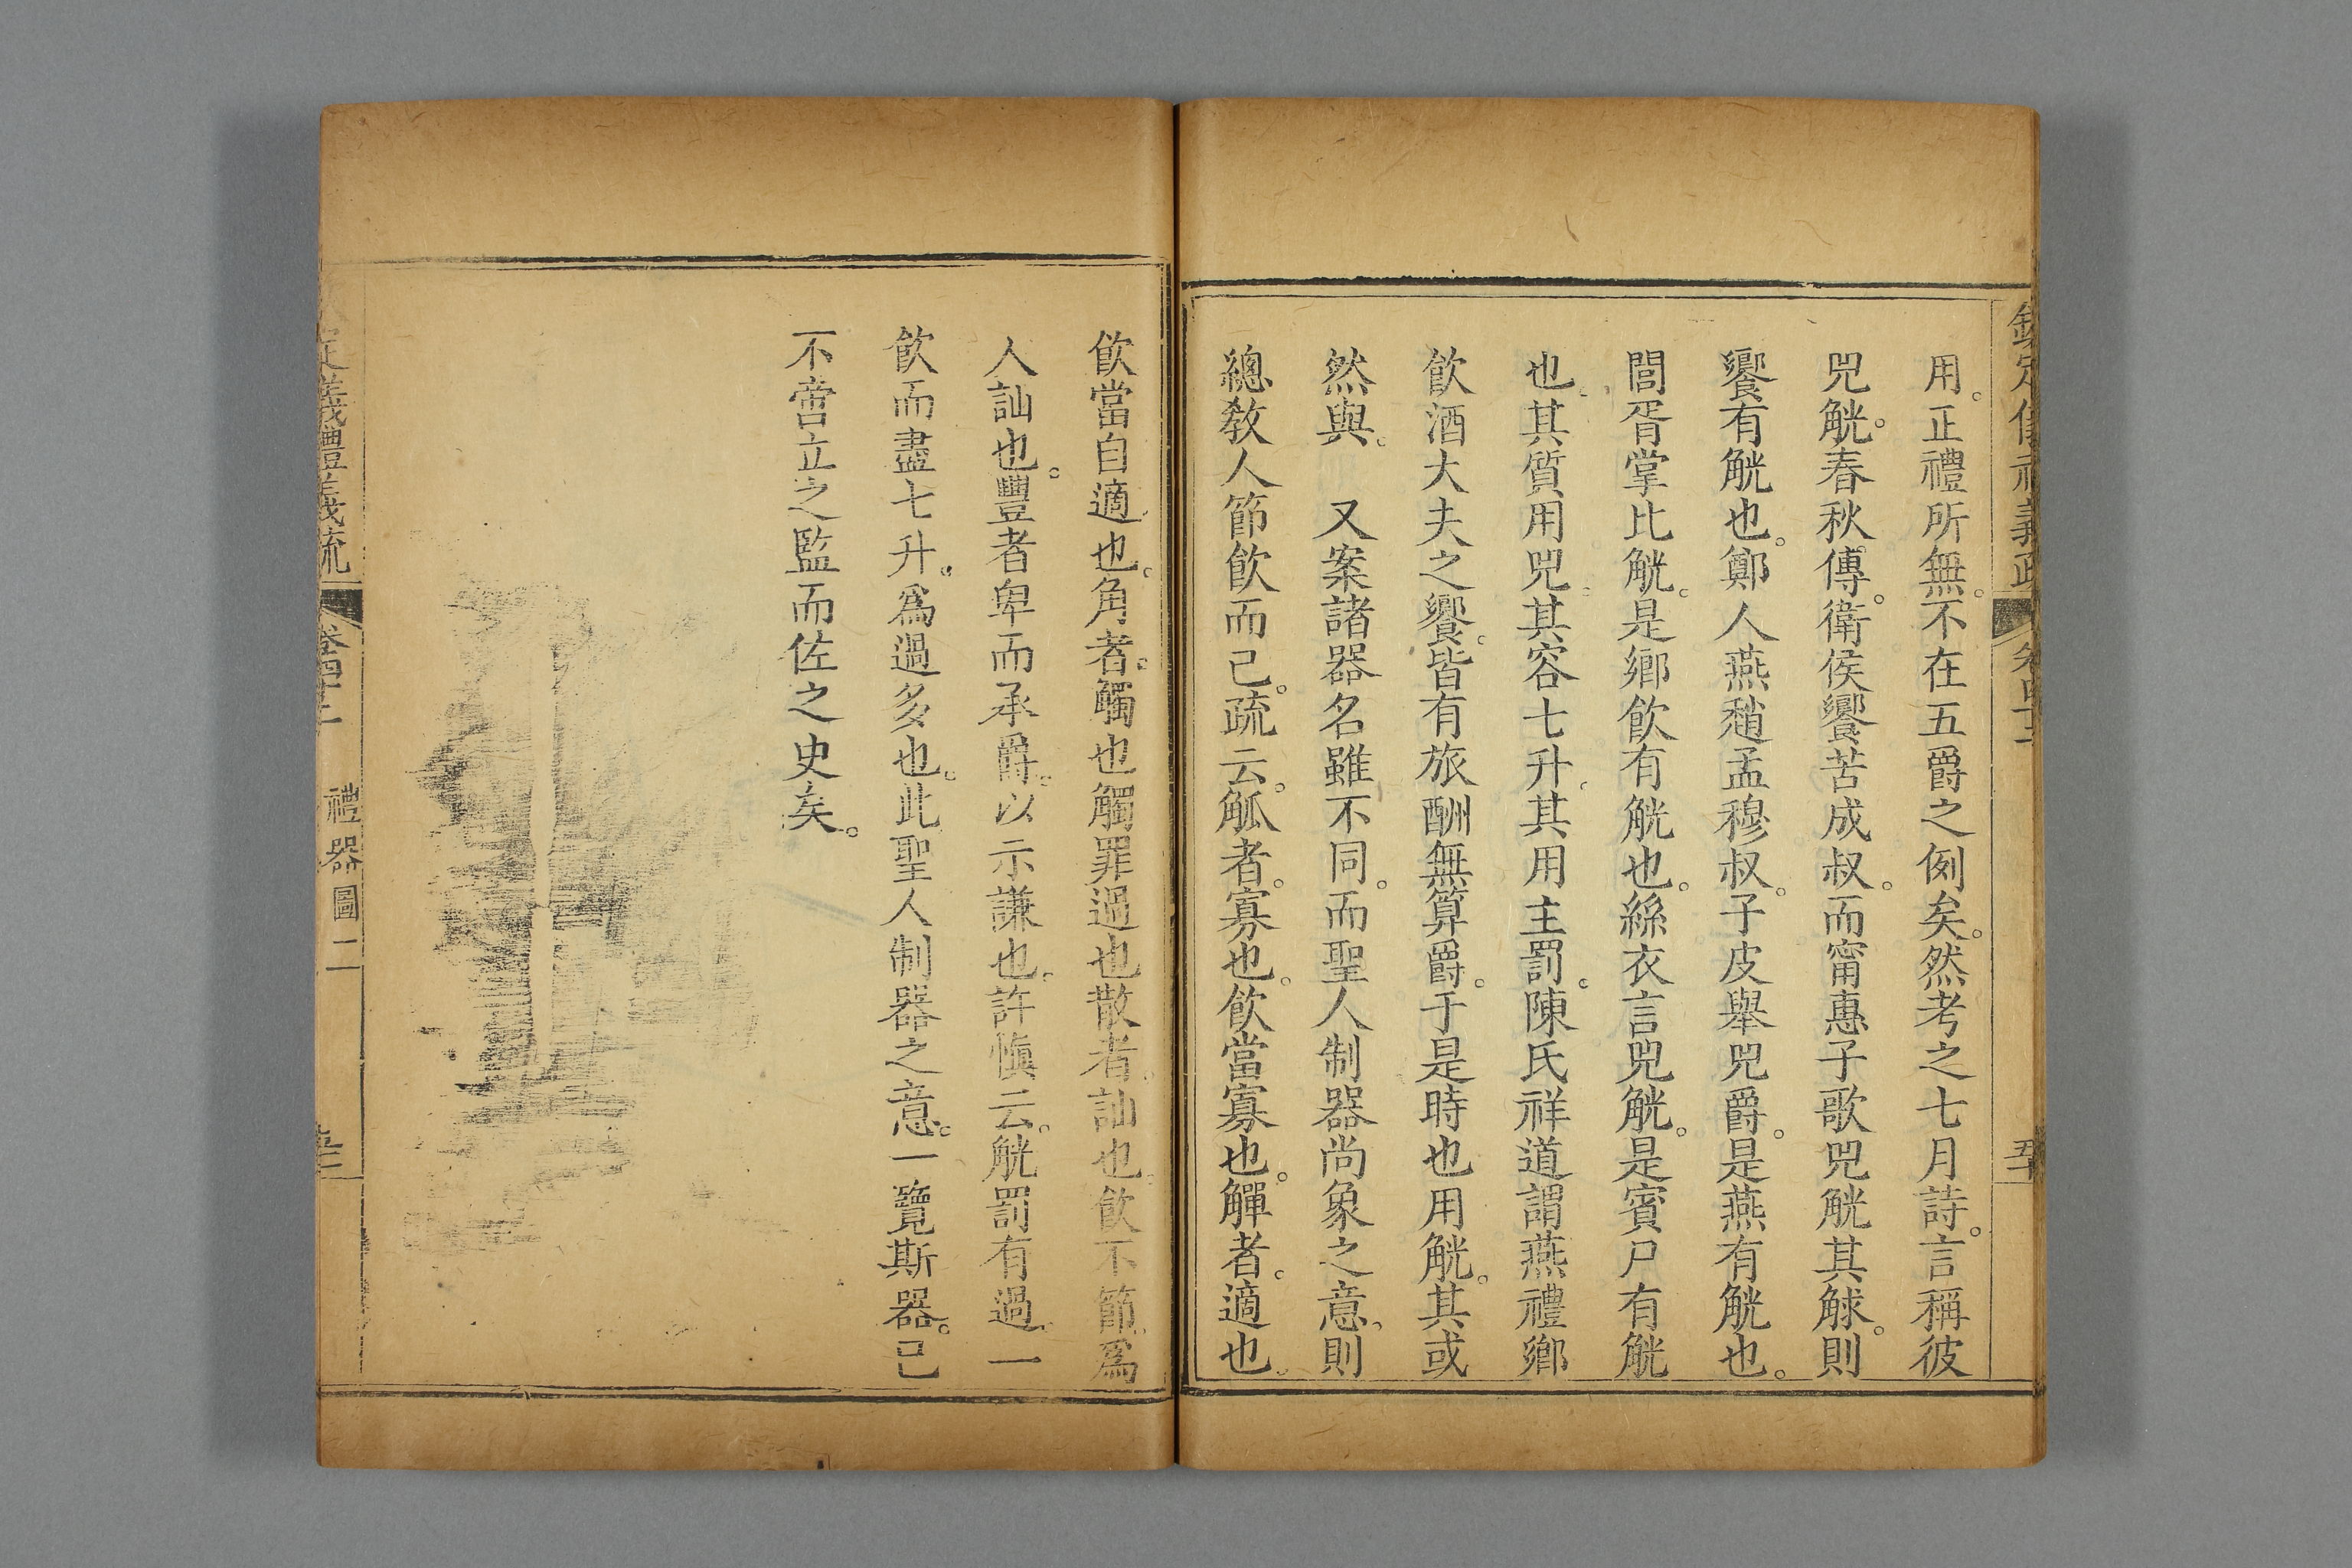 用。正禮所無。不在五爵之例矣。然考之七月詩。言稱彼
兕觥。春秋傳。衛侯饗苦成叔。而甯惠子歌兕觥其觩。則
饗有觥也。鄭人燕趙孟穆叔。子皮舉兕爵。是燕有觥也。
閭胥掌比觥。是鄉飲有觥也。絲衣言兕觥。是賓尸有觥
也。其質用兕。其容七升。其用主罰。陳氏祥道謂燕禮鄉
飲酒大夫之饗。皆有旅酬無算爵。于是時也用觥。其或
然與。　又案諸器名雖不同。而聖人制器尚象之意。則
總教人節飲而已。疏云。觚者。寡也。飲當寡也。觶者。適也。
飲當自適也。角者。觸也觸罪過也散者。訕也。飲不節。爲
人訕也。豐者卑而承爵。以示謙也。許慎云。觥罰有過。一
飲而盡七升。爲過多也。此聖人制器之意。一覽斯器。已
不啻立之監而佐之史矣。
定義禮義疏 卷四十二 禮器圖二